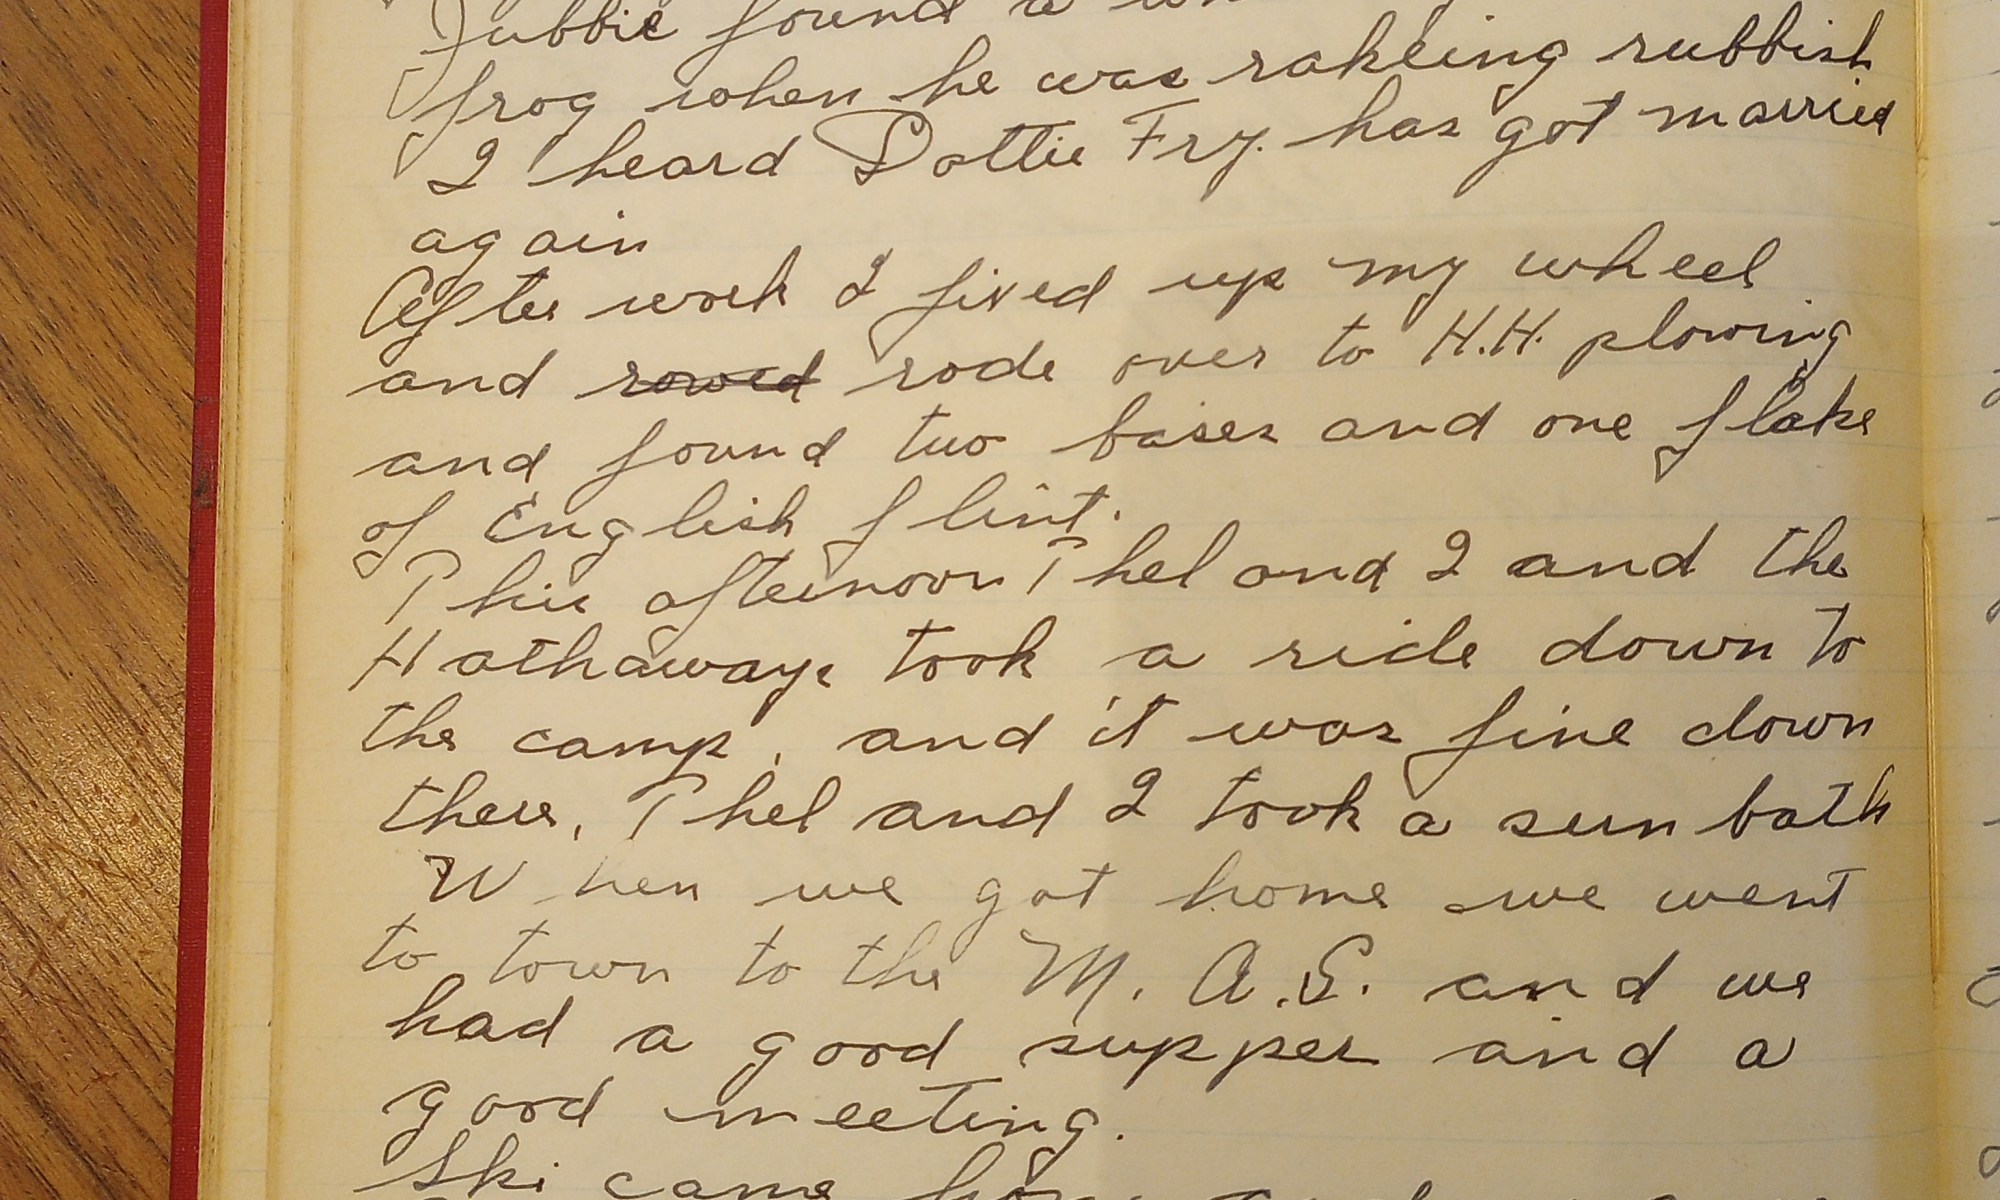 Jubbie found a
frog when he was rakeing rubbish
I heard Dottie Fry. has got married
again
After work I fixed up my wheel
and rowed rode over to H.H. plowing
and found two bases and one flake
of English flint.
This afternoon Thel and I and the
Hathaways took a ride down to
the camp, and it was fine down
there, Thel and I took a sun bath
When we got home we went
to town to the M.A.S. and we
had a good supper and a
good meeting.
Ski came